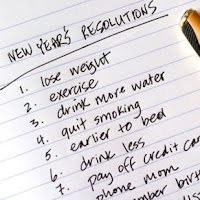 NEW YEAR'S RESOLUTIONS
1. lose weight
2. exercise
3. drink more water
4. quit smoking
5. earlier to bed
6. drink less
7. pay off credit car
phone mom
member birt